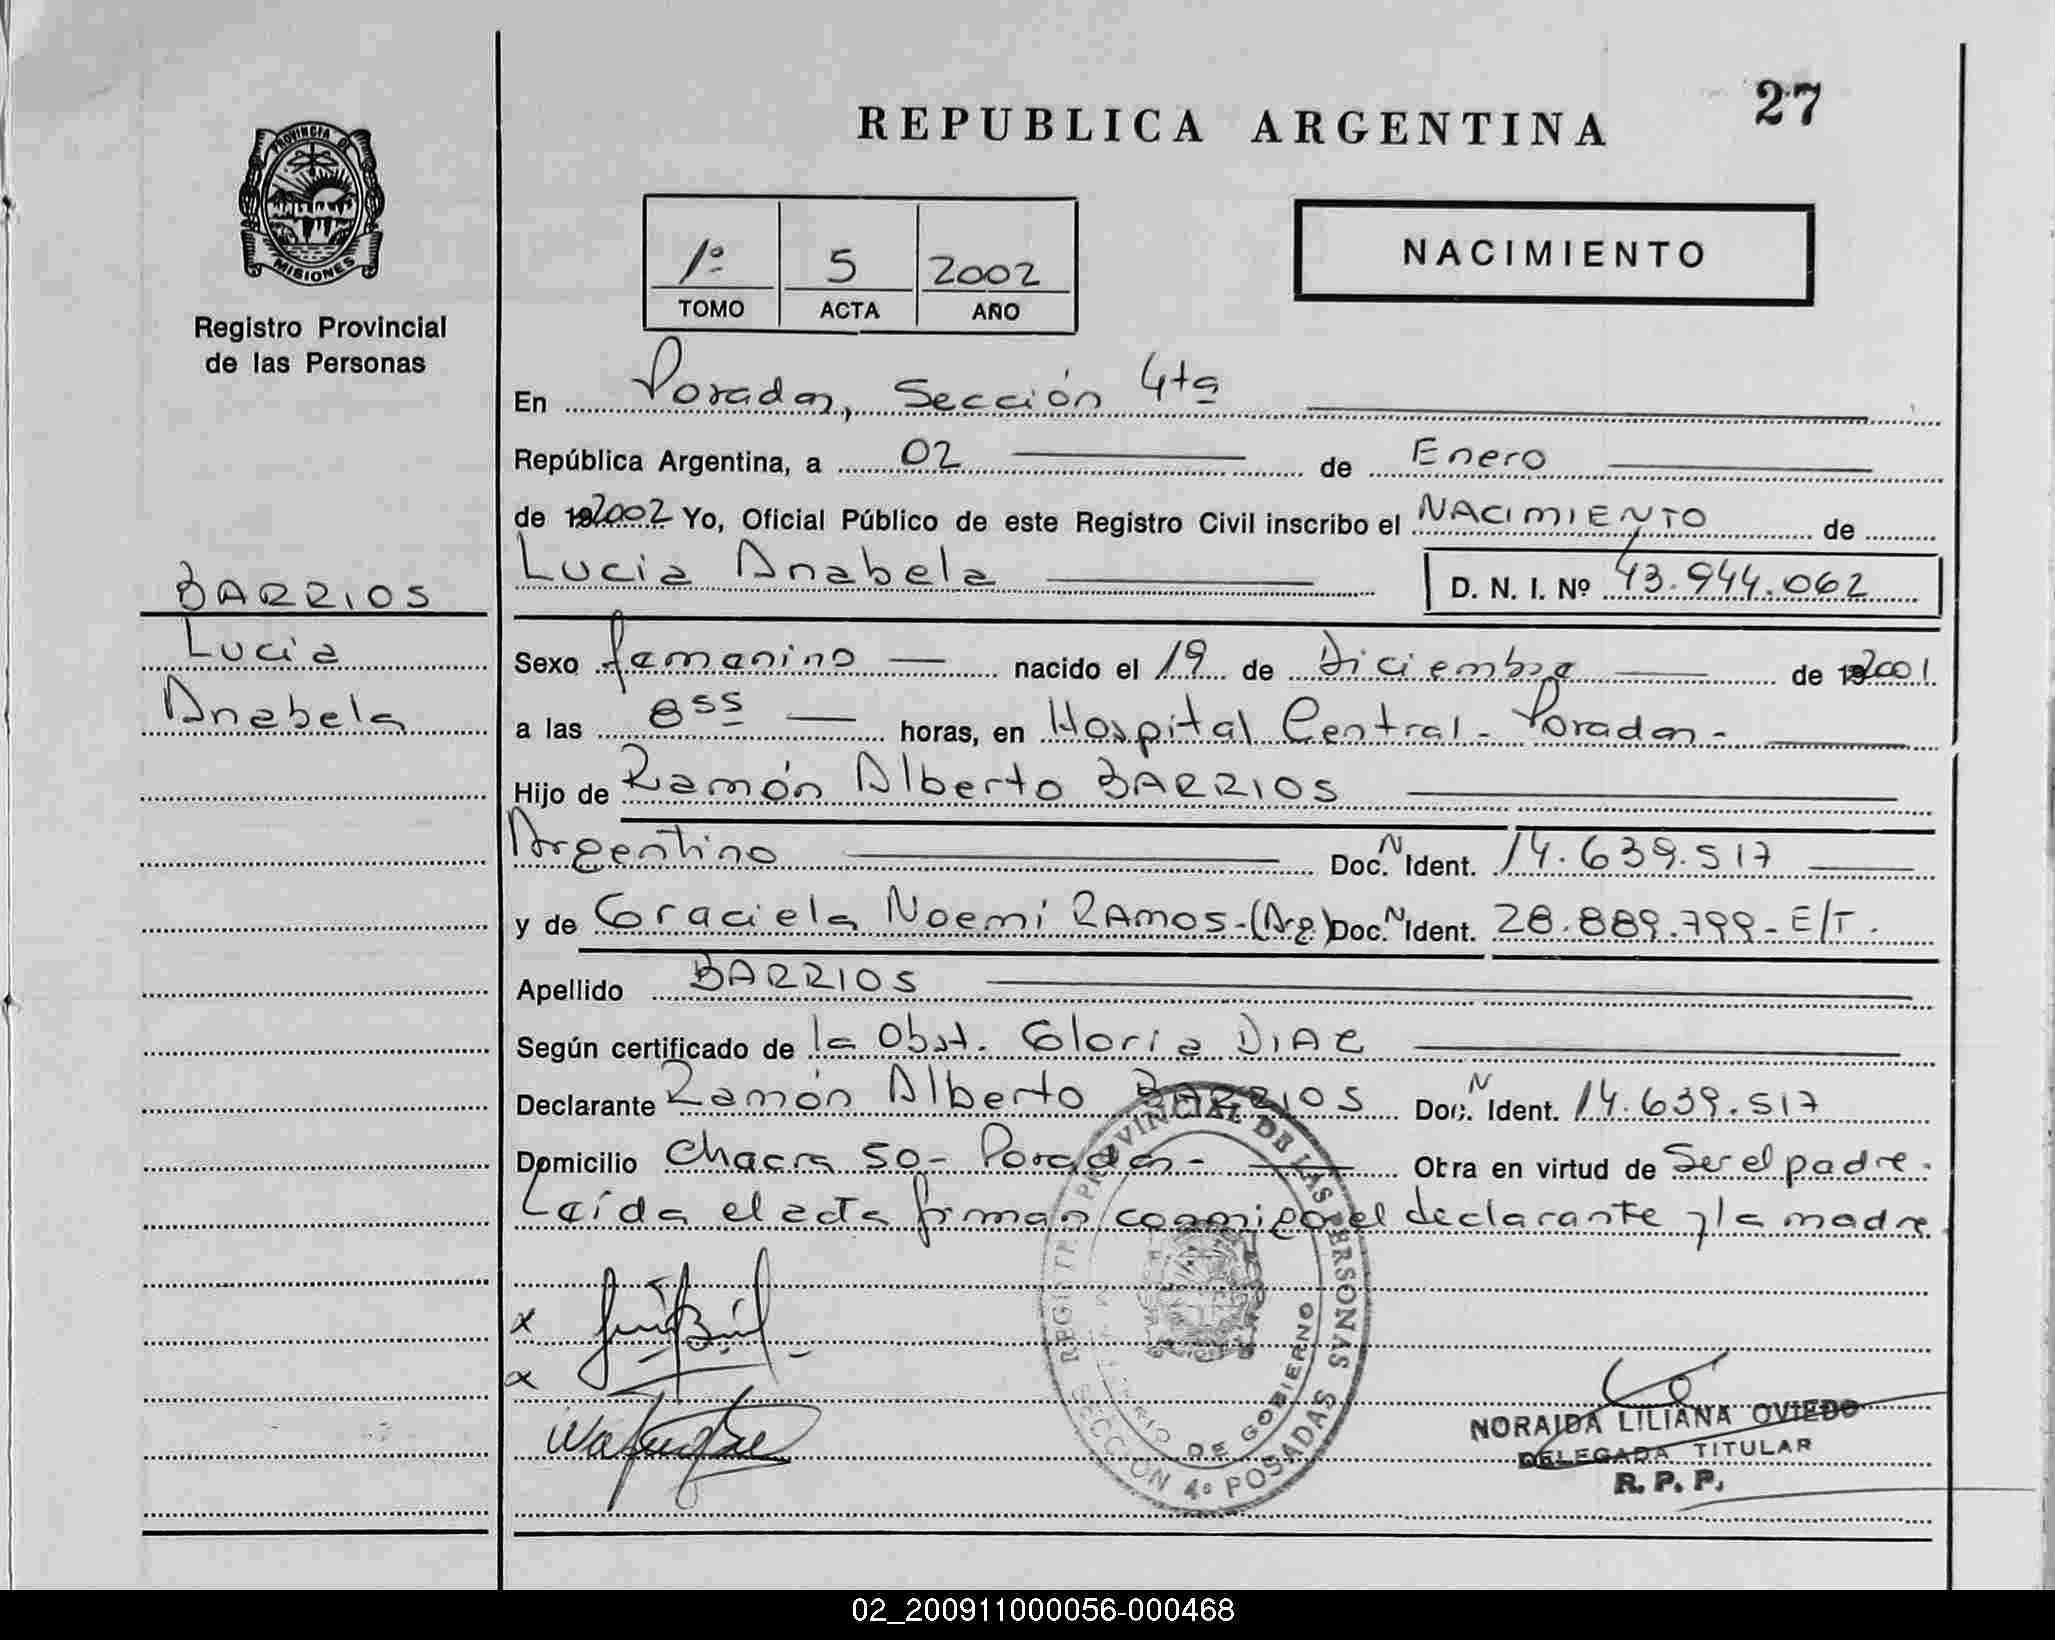 PROVINCIA DE
MISIONES
Registro Provincial
de las Personas
BARRIOS
Lucia
Anabela
REPUBLICA ARGENTINA
27
1º 5 2002
TOMO ACTA AÑO
NACIMIENTO
En Posadas, Sección 4ta
República Argentina, a 02 de Enero
de 192002 Yo, Oficial Público de este Registro Civil inscribo el NACIMIENTO de
Lucia Anabela D. N. I. Nº 43.944.062
Sexo femenino nacido el 19 de Diciembre de 192001
a las 8 55 horas, en Hospital Central - Posadas -
Hijo de Ramón Alberto BARRIOS
Argentino Doc. N Ident. 14.639.517
y de Graciela Noemí RAMOS - (Arg.) Doc. N Ident. 28.889.799 - E/T.
Apellido BARRIOS
Según certificado de la Obst. Gloria DIAZ
Declarante Ramón Alberto BARRIOS Doc. N Ident. 14.639.517
Domicilio Chacra 50 - Posadas - Obra en virtud de Ser el padre.
Leída el acta firman conmigo el declarante y la madre.
x
x
REGISTRO PROVINCIAL DE LAS PERSONAS
DE GOBIERNO
SECCION 4º POSADAS
NORAIDA LILIANA OVIEDO
DELEGADA TITULAR
R. P. P.
02_200911000056-000468